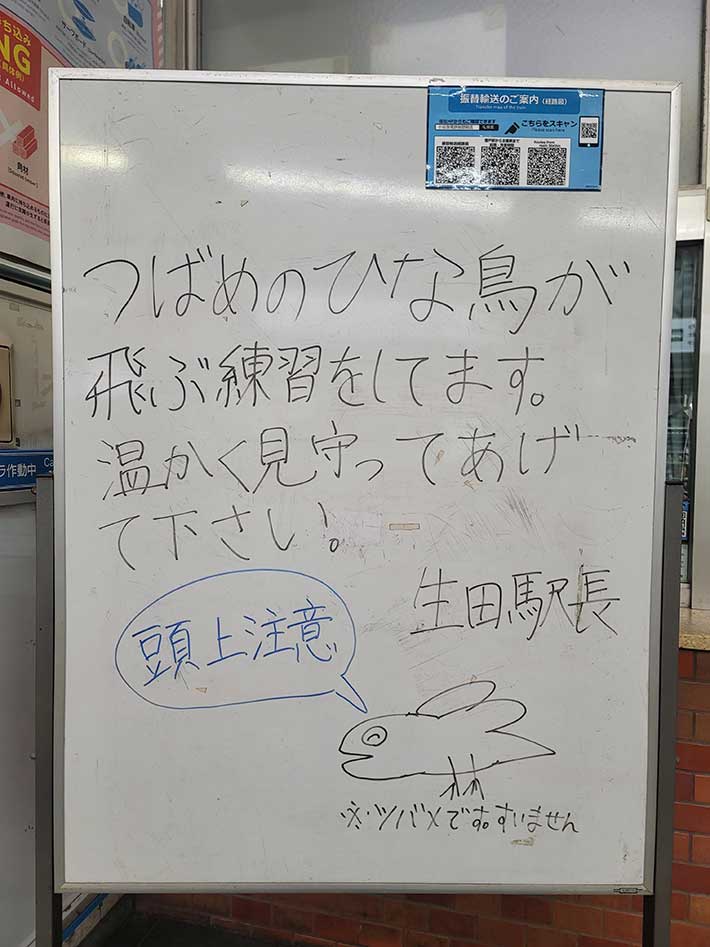 NG
Allowed
角材
振替輸送のご案内（経路図）
こちらをスキャン
つばめのひな鳥が
飛ぶ練習をしてます。
温かく見守ってあげ
て下さい。
生田駅長
頭上注意
※ツバメです。すいません
ラ作動中
Ca